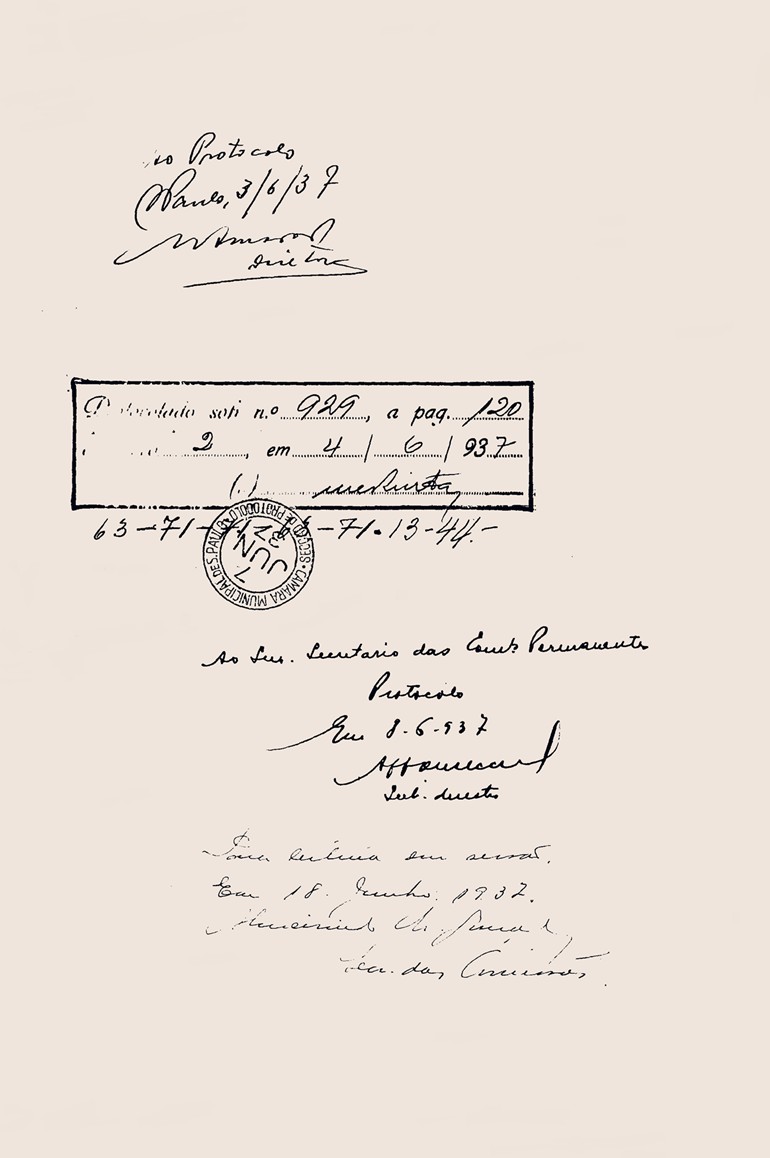 Ao Protocolo
S Paulo, 3/6/37
Diretor
Protocolado sob n.o 929, a pag. 120
2, em 4 / 6 / 937
(.)
63-71- -71.13-44.-
CAMARA MUNICIPAL DE S. PAULO • SECÇÃO DE PROTOCOLO
7 JUN 37
Ao Snr. Secretario das Coms Permanentes
Protocolo
Em 8-6-937
Sub. diretor
Para leitura em sessão.
Em 18. Junho. 1937.
Sec. das Comissões.